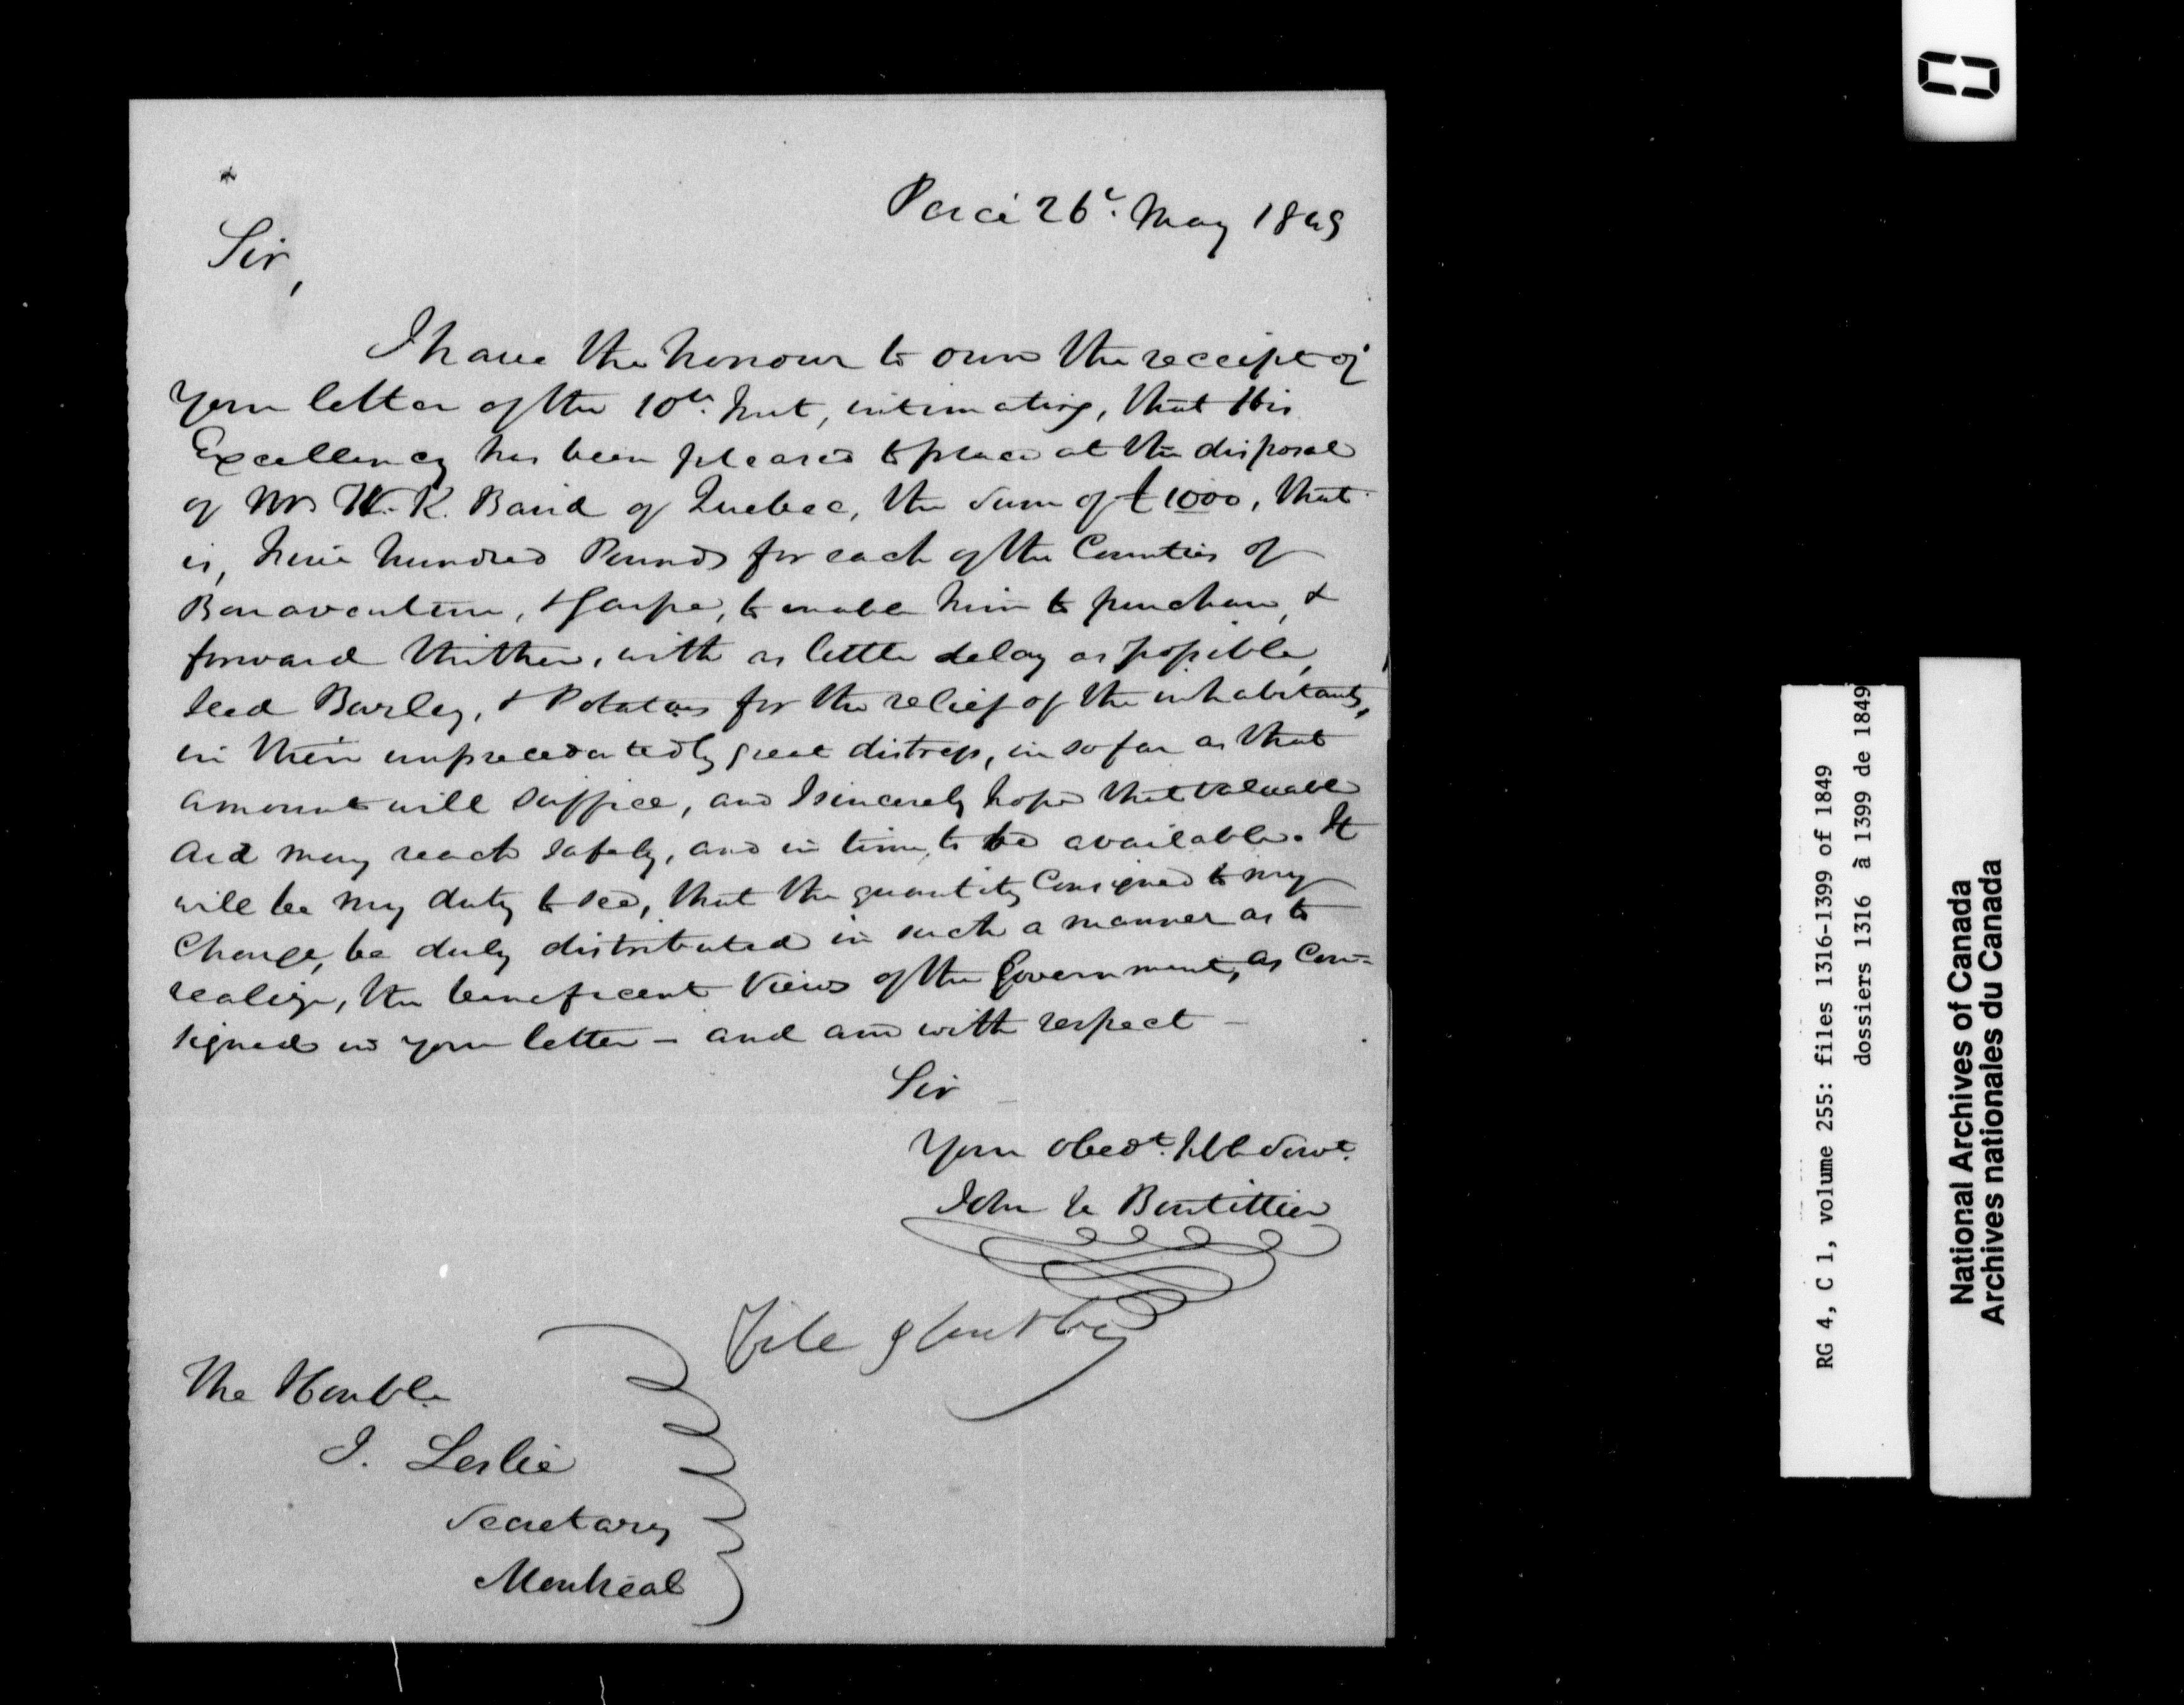 Percé 26th. May 1849
Sir,
I have the honour to own the receipt of
your letter of the 10th. Inst, intimating, that His
Excellency has been pleased to place at the disposal
of Mr W. K. Baird of Quebec, the sum of £1000, that
is, hundred Pounds for each of the Counties of
Bonaventure, & Gaspe, to enable him to purchase, &
forward thither, with as little delay as possible,
seed Barley, & Potatoes for the relief of the inhabitants,
in their unprecedentedly great distress, in so far as that
amount will suffice, and I sincerely hope that valuable
aid may reach safely, and in time, to be available. It
will be my duty to see, that the quantity Consigned to my
Charge, be duly distributed in such a manner as to
realize, the beneficent Views of the Government, as Con=
signed in your letter - and am with respect -
Sir
Your obedt. Hble Servt.
John Le Boutillier
File
The Honble.
J. Leslie
Secretary
Montreal
0
RG 4, C 1, volume 255: files 1316-1399 of 1849
dossiers 1316 à 1399 de 1849
National Archives of Canada
Archives nationales du Canada